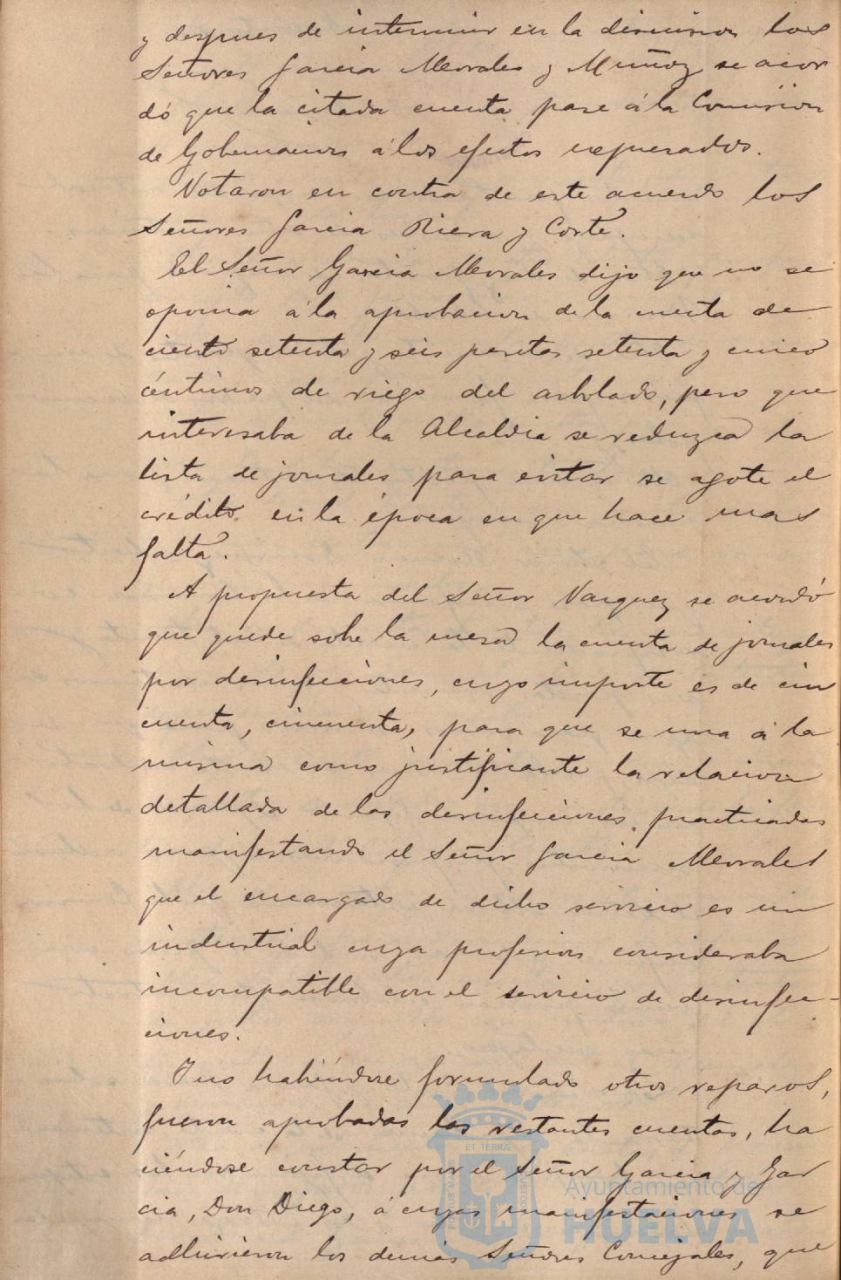 y despues de intervenir en la discusion los
Señores Garcia Morales y Muñoz se acor
dó que la citada cuenta pase á la Comision
de Gobernacion á los efectos expresados.
Votaron en contra de este acuerdo los
Señores Garcia Riera y Corte.
El Señor Garcia Morales dijo que no se
oponia á la aprobacion de la cuenta de
ciento setenta y seis pesetas setenta y cinco
céntimos de riego del arbolado, pero que
interesaba de la Alcaldia se reduzca la
lista de jornales para evitar se agote el
crédito en la época en que hace mas
falta.
A propuesta del Señor Vazquez se acordó
que quede sobre la mesa la cuenta de jornales
por desinfecciones, cuyo importe es de cin
cuenta, cincuenta, para que se una á la
misma como justificante la relacion
detallada de las desinfecciones practicadas
manifestando el Señor Garcia Morales
que el encargado de dicho servicio es un
industrial cuya profesion consideraba
incompatible con el servicio de desinfec-
ciones.
Y no habiéndose formulado otros reparos,
fueron aprobadas las restantes cuentas, ha
ciéndose constar por el Señor Garcia y Gar
cia, Don Diego, á cuyas manifestaciones se
adhirieron los demás Señores Concejales, que
Ayuntamiento de
HUELVA